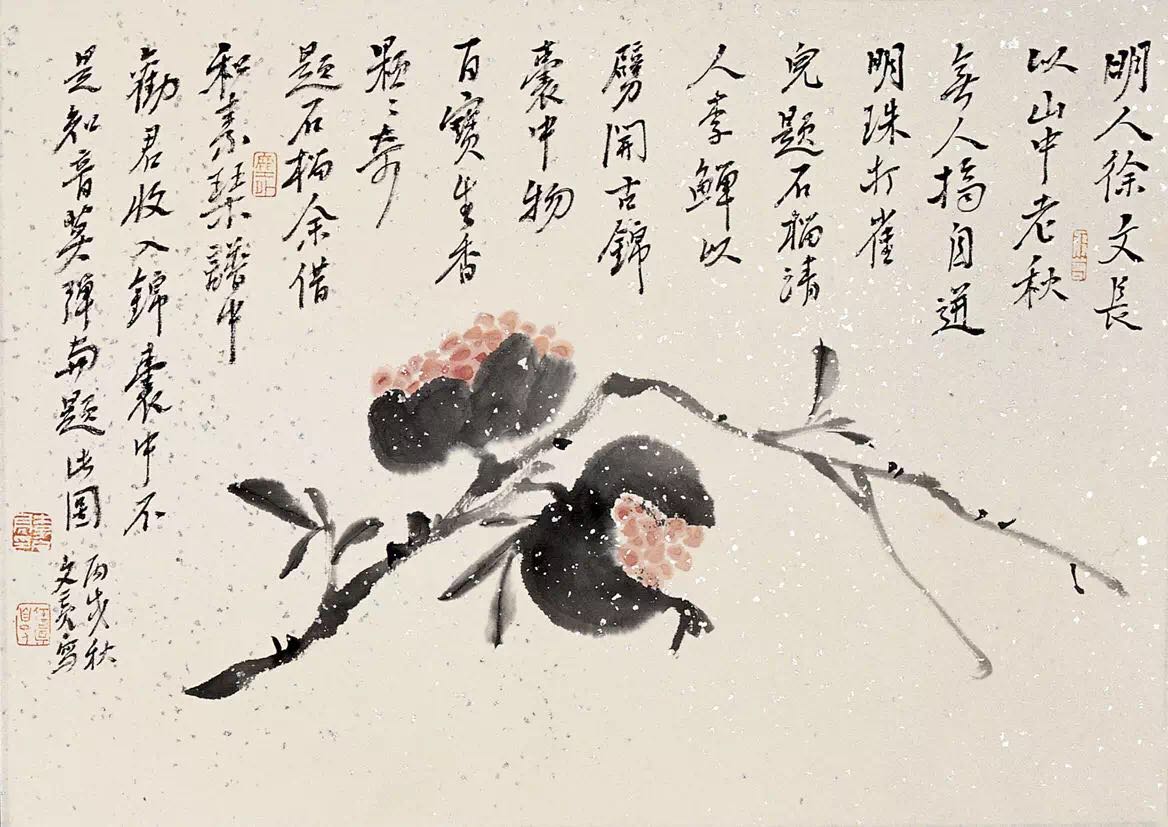 明人徐文長
以山中老秋
無人摘自迸
明珠打雀
兒題石榴清
人李鱓以
劈開古錦
囊中物
百寶生香
顆〻奇
題石榴余借
和素琹譜中
勸君收入錦囊中不
是知音莫彈與題此圖
丙戌秋
文亮寫